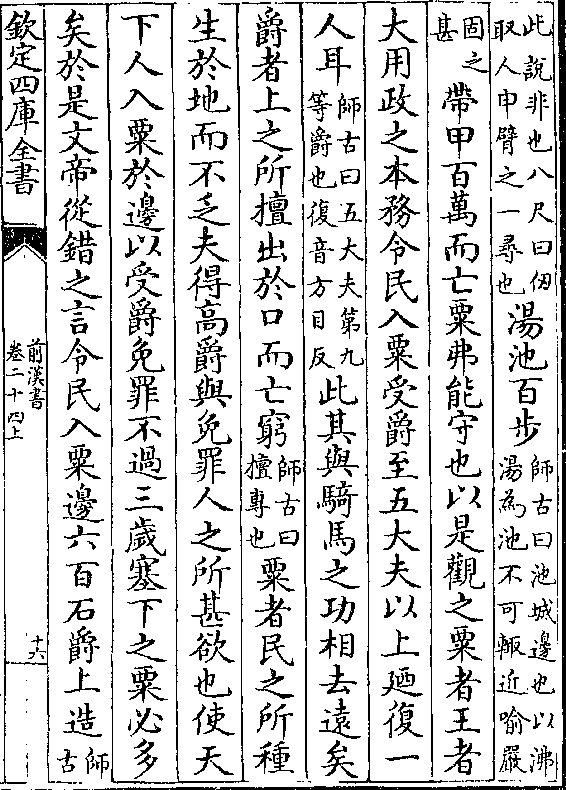 此說非也八尺曰仞
取人申臂之一尋也
湯池百步
師古曰池城邊也以沸
湯為池不可輙近喻嚴
固之
甚
帶甲百萬而亡粟弗能守也以是觀之粟者王者
大用政之本務令民入粟受爵至五大夫以上廼復一
人耳
師古曰五大夫第九
等爵也復音方目反
此其與騎馬之功相去遠矣
爵者上之所擅出於口而亡窮
師古曰
擅專也
粟者民之所種
生於地而不乏夫得高爵與免罪人之所甚欲也使天
下人入粟於邊以受爵免罪不過三歲塞下之粟必多
矣於是文帝從錯之言令民入粟邊六百石爵上造
師
古
欽定四庫全書
前漢書
卷二十四上
十六